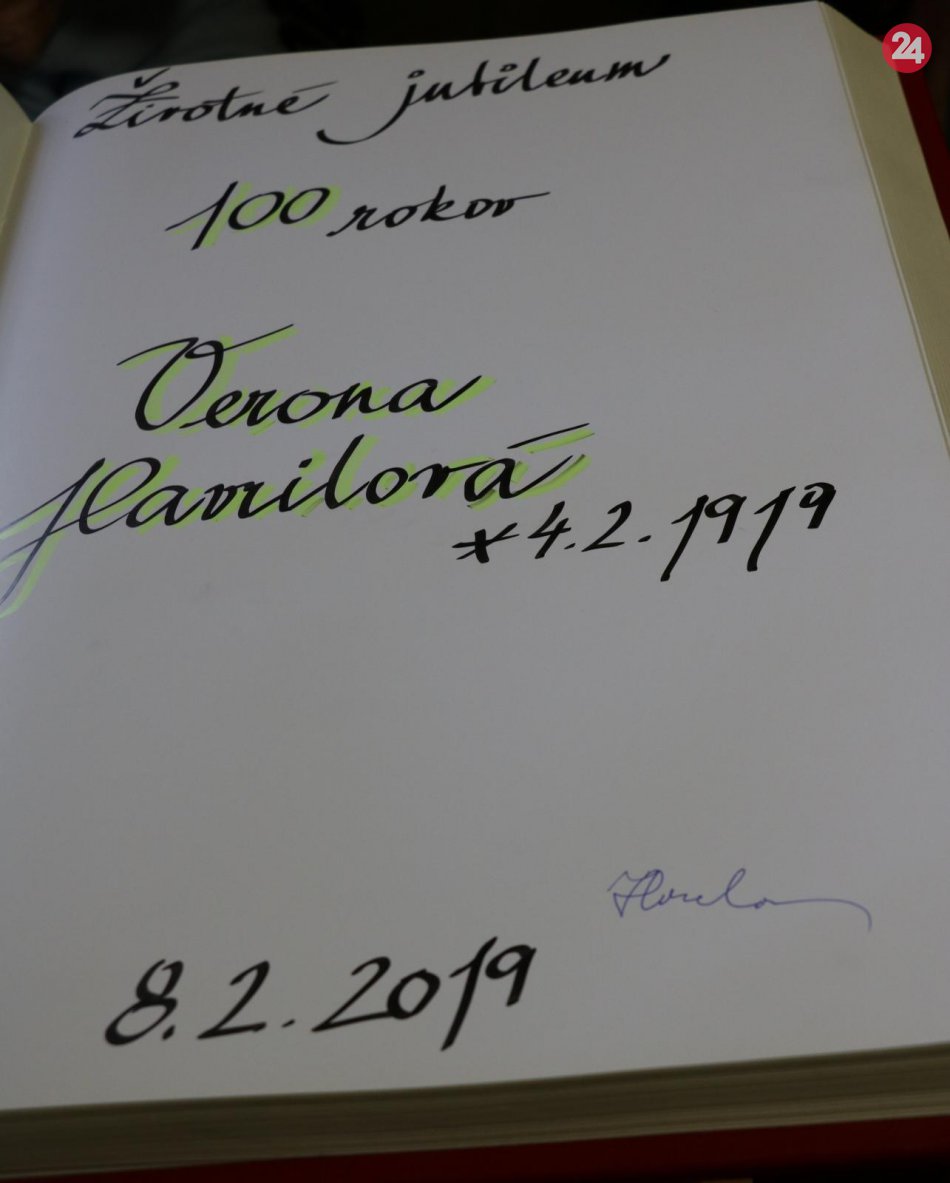 24
Životné jubileum
100 rokov
Verona
Havrilová
* 4. 2. 1919
8. 2. 2019